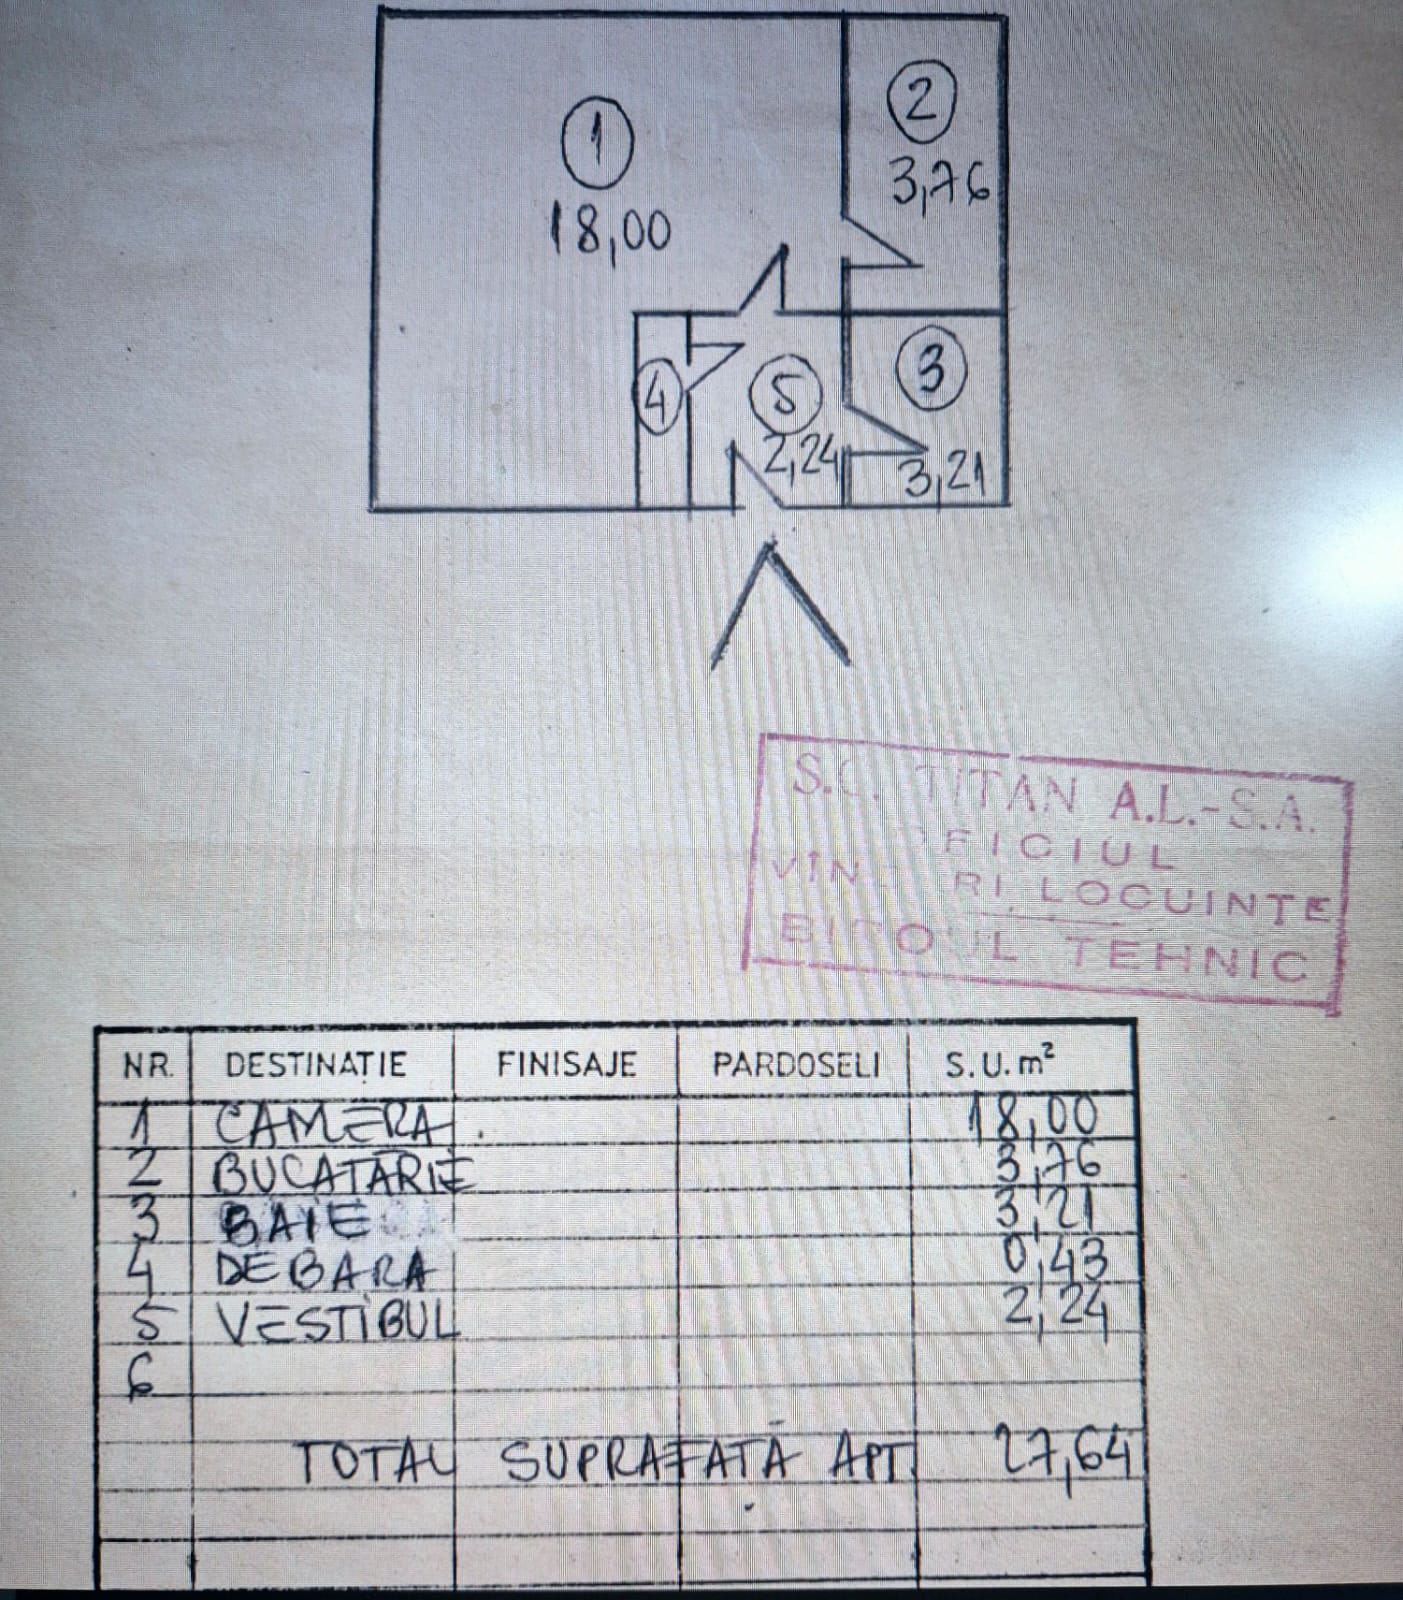 1
18,00
2
3,76
3
3,21
4
5
2,24
S.C. TITAN A.L.-S.A.
LOCUINTE
TEHNIC
NR. DESTINAȚIE FINISAJE PARDOSELI S.U.m²
1 CAMERA 18,00
2 BUCATĂRIE 3,76
3 BAIE 3,21
4 DEBARA 0,43
5 VESTIBUL 2,24
6
TOTAL SUPRAFATĂ APT 27,64